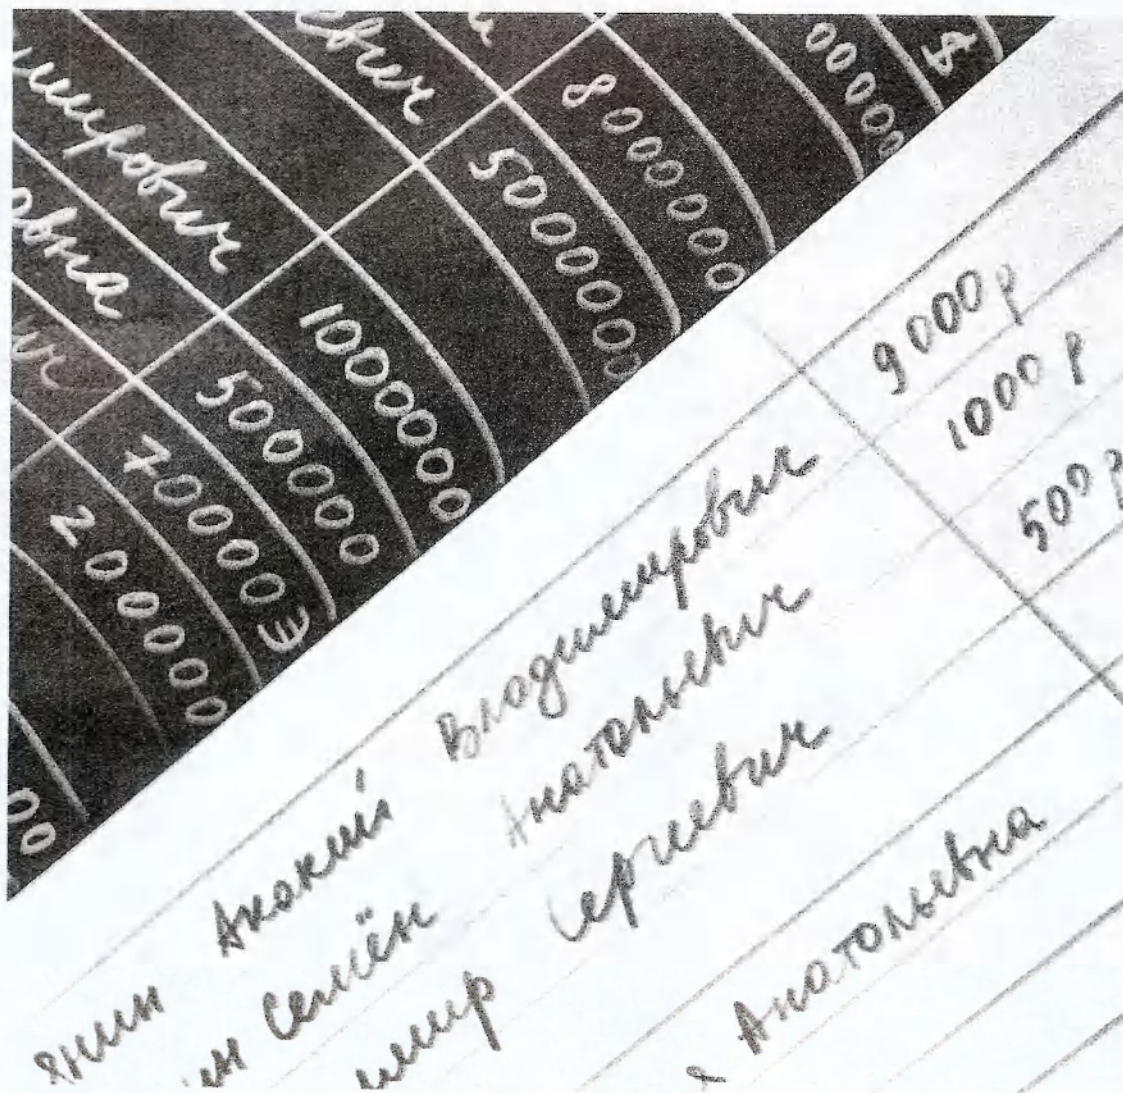 евич
мирович
овна
ич
8000000
5000000
1000000
500000
70000€
200000
00
000000
$
янин Акакий Владимирович 9000р
ин Семён Анатольевич 1000р
имир Сергеевич 500р
я Анатольевна